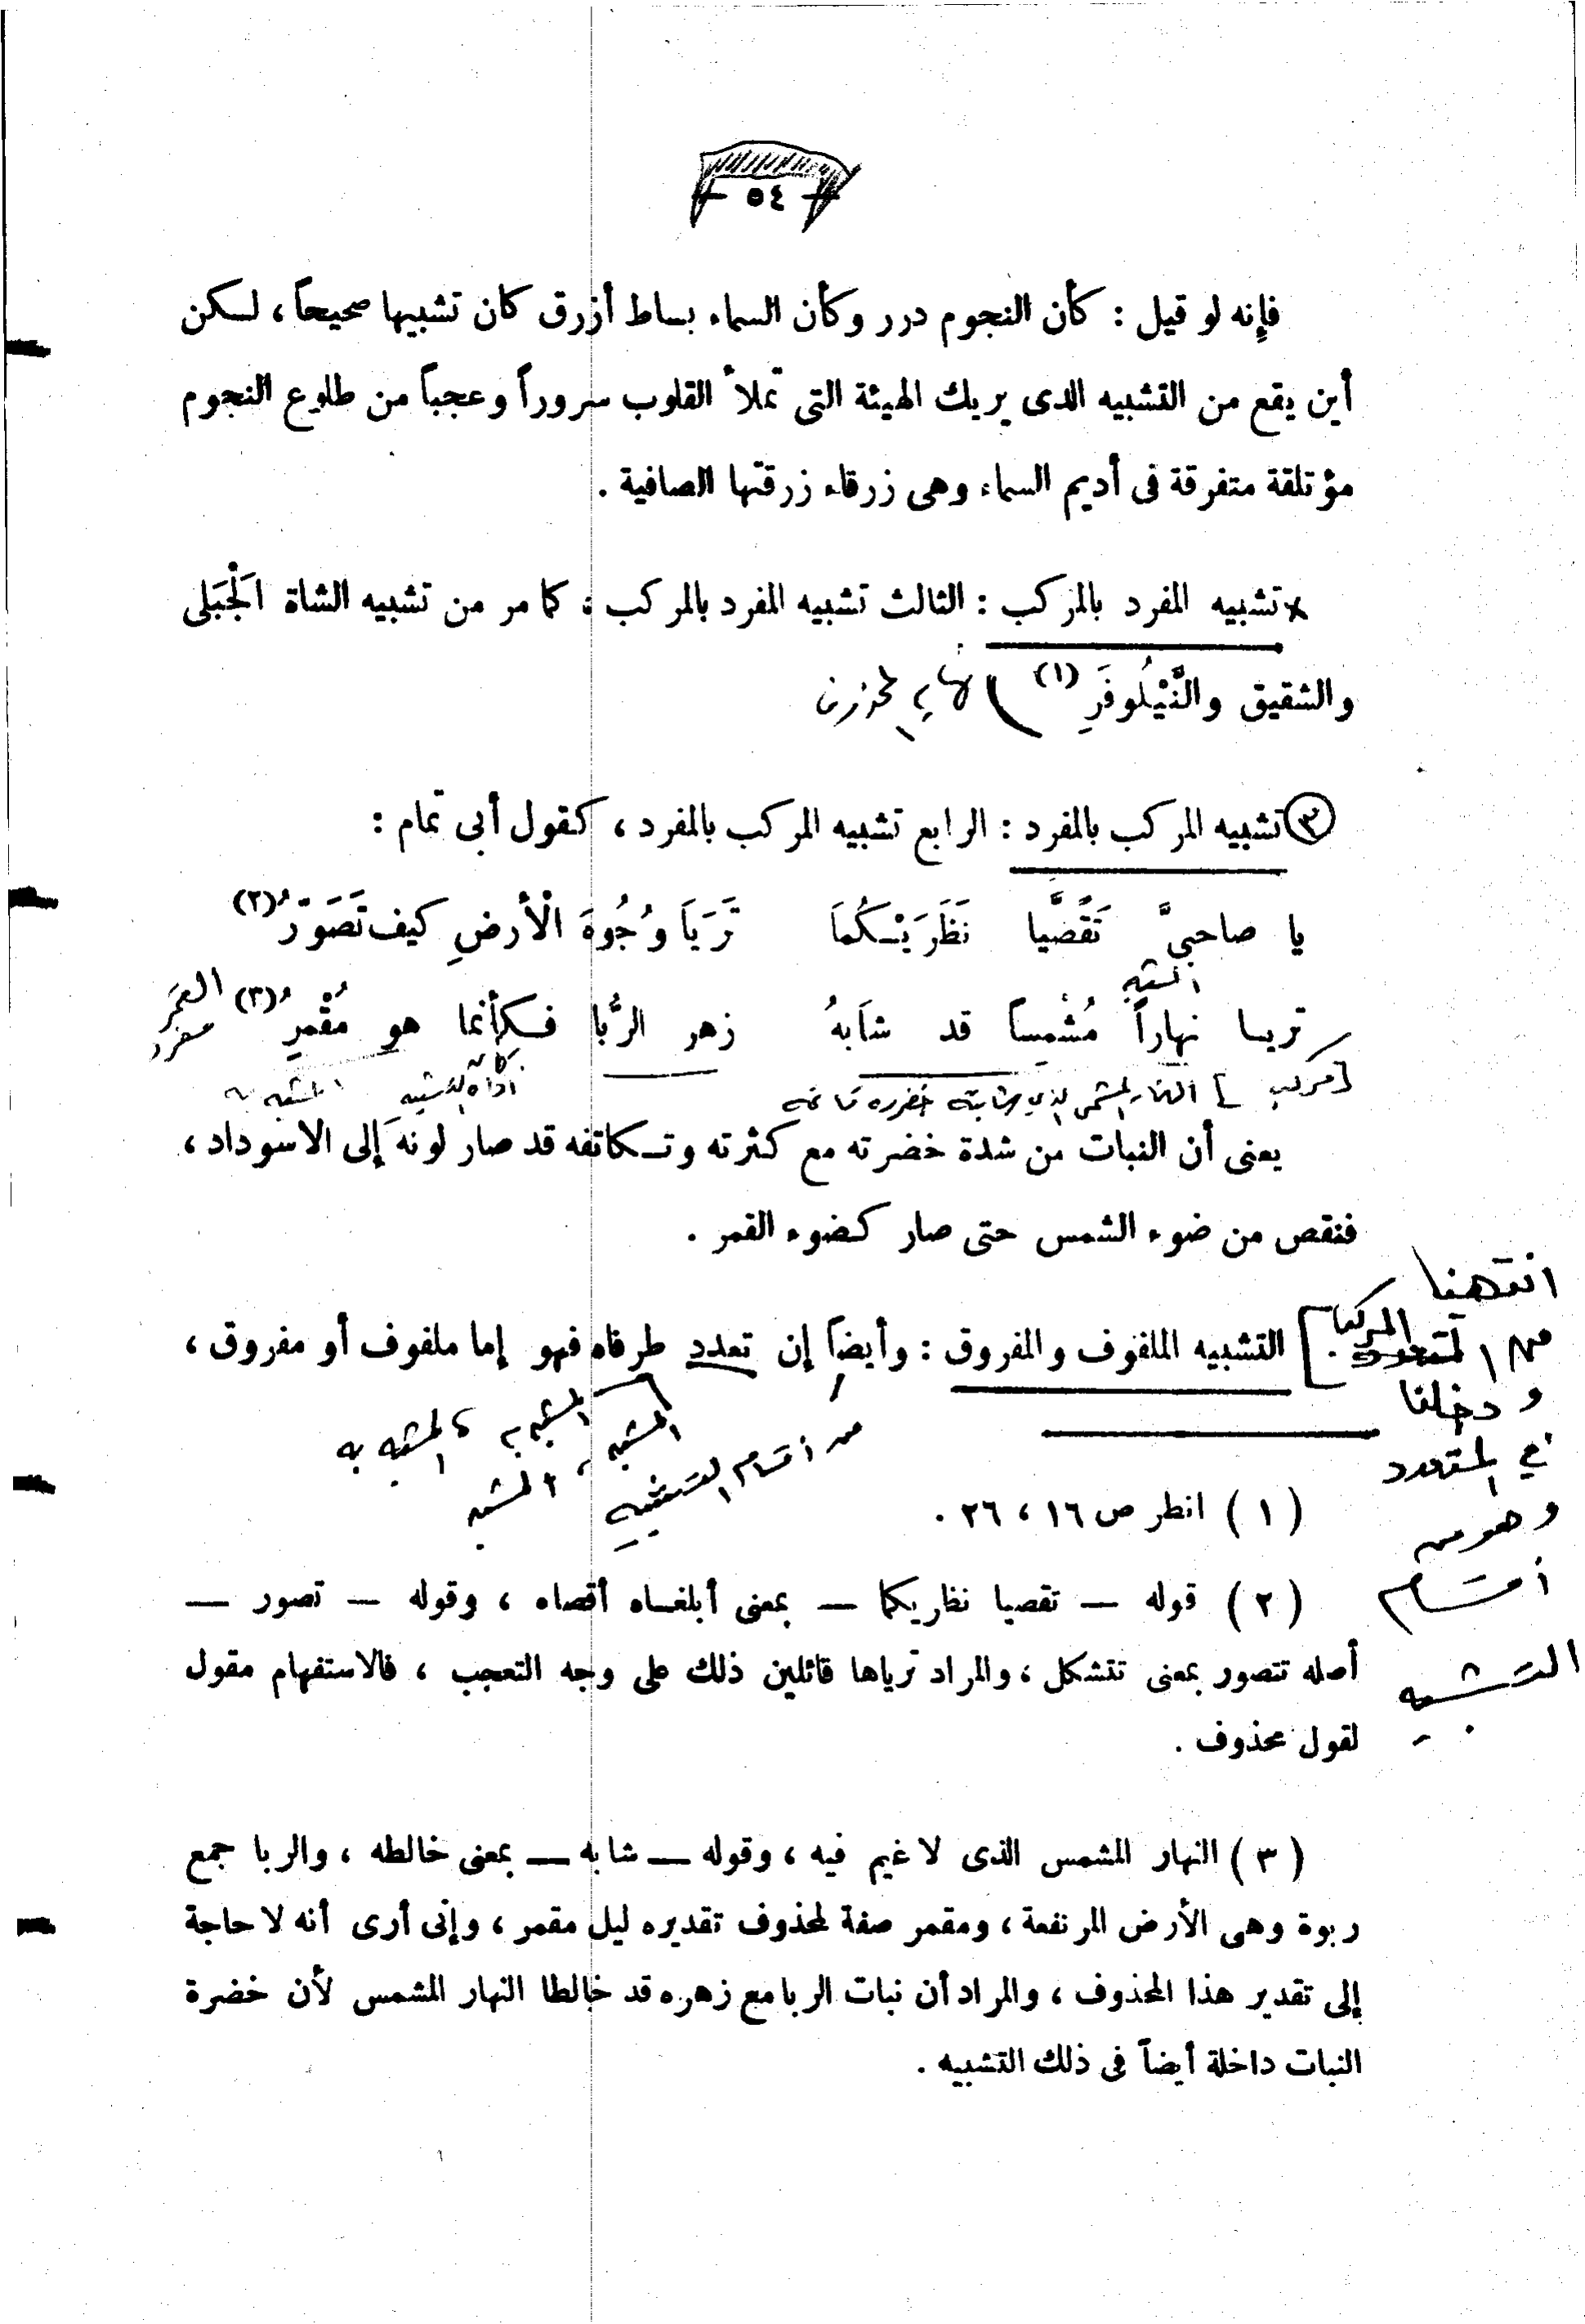 - ٥٤ -
فإنه لو قيل : كأن النجوم درر وكأن السماء بساط أزرق كان تشبيها صحيحاً ، لكن
أين يقع من التشبيه الذى يريك الهيئة التى تملأ القلوب سروراً وعجباً من طلوع النجوم
مؤتلقة متفرقة فى أديم السماء وهى زرقاء زرقتها الصافية .
× تشبيه المفرد بالمركب : الثالث تشبيه المفرد بالمركب ، كما مر من تشبيه الشاة الْجَبَلى
والشقيق والنَّيْلُوفَرِ (١)
٣ تشبيه المركب بالمفرد : الرابع تشبيه المركب بالمفرد ، كقول أبى تمام :
يا صاحبىَّ تَقَصَّيا نَظَرَيْكُمَا تَرَيَا وُجُوهَ الْأرضِ كيف تَصَوَّرُ (٢)
المشبه
تريا نهاراً مُشْمِساً قد شَابَهُ زهر الرُّبا فكأنما هو مُقْمِرُ (٣) القمر
مفرد
[مركب] النهار المشمس الذي شابته خضرة قاتمة كأن أداة التشبيه المشبه به
يعنى أن النبات من شدة خضرته مع كثرته وتكاتفه قد صار لونه إلى الاسوداد ،
فنقص من ضوء الشمس حتى صار كضوء القمر .
انتهينا
من المركب
[ التشبيه الملفوف والمفروق : وأيضاً إن تعدد طرفاه فهو إما ملفوف أو مفروق ،
ودخلنا
في المتعدد
وهو من
أقسام
التشبيه
المشبه ، المشبه به ، المشبه به
من أقسام التشبيه
( ١ ) انظر ص ١٦ ، ٢٦ .
( ٢ ) قوله — تقصيا نظريكما — بمعنى أبلغاه أقصاه ، وقوله — تصور —
أصله تتصور بمعنى تتشكل ، والمراد ترياها قائلين ذلك على وجه التعجب ، فالاستفهام مقول
لقول محذوف .
( ٣ ) النهار المشمس الذى لا غيم فيه ، وقوله — شابه — بمعنى خالطه ، والربا جمع
ربوة وهى الأرض المرتفعة ، ومقمر صفة لمحذوف تقديره ليل مقمر ، وإنى أرى أنه لا حاجة
إلى تقدير هذا المحذوف ، والمراد أن نبات الربا مع زهره قد خالطا النهار المشمس لأن خضرة
النبات داخلة أيضاً فى ذلك التشبيه .